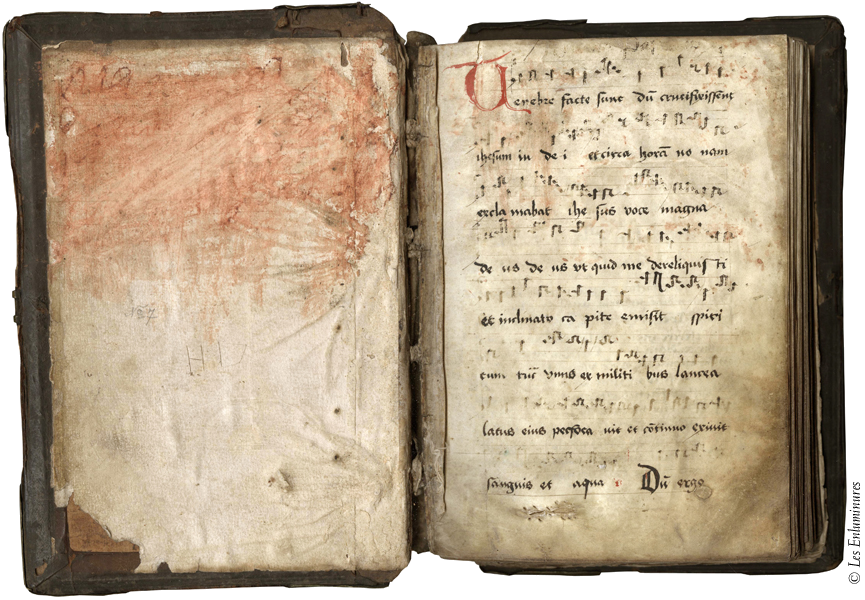 HIV
Tenebre facte sunt dū crucifixissent
ihesum iu de i et circa horā no nam
excla mabat ihe sus voce magna
de us de us vt quid me dereliquis ti
et inclinato ca pite emisit spiri
tum tūc vnus ex militi bus lancea
latus eius perfora uit et cōtinuo exiuit
sanguis et aqua Dū ergo
© Les Enluminures